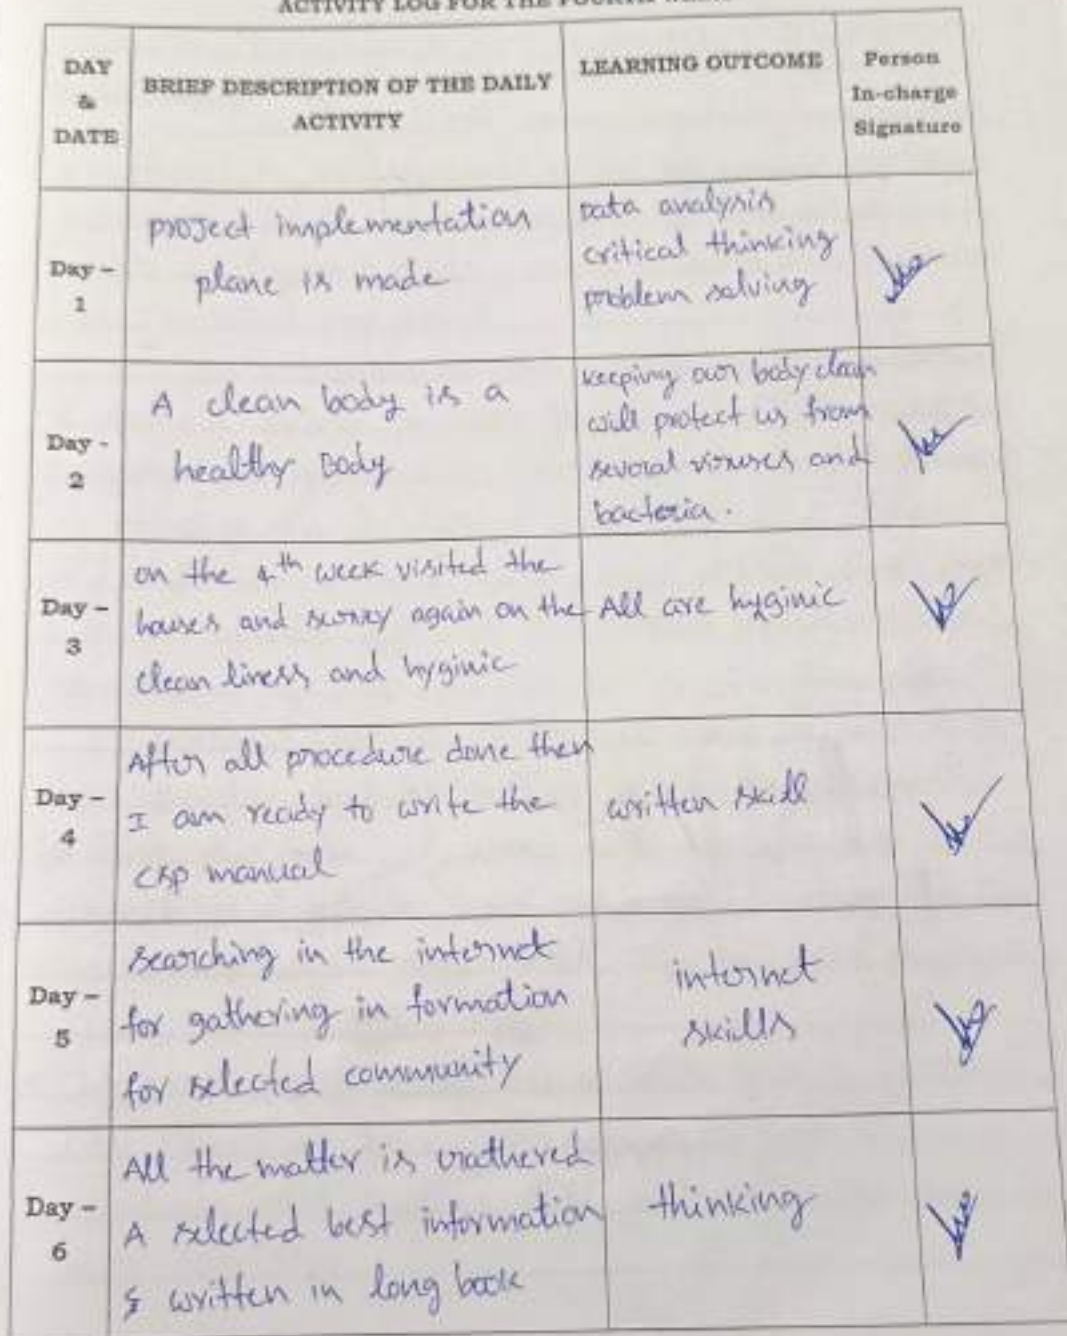 ACTIVITY LOG FOR THE FOURTH WEEK
DAY
&
DATE
BRIEF DESCRIPTION OF THE DAILY
ACTIVITY
LEARNING OUTCOME
Person
In-charge
Signature
Day –
1
project implementation
plane is made
Data analysis
critical thinking
problem solving
Day -
2
A clean body is a
healthy Body
keeping our body clean
will protect us from
several viruses and
bacteria.
Day –
3
on the 4th week visited the
houses and survey again on the
clean liness and hyginic
All are hyginic
Day –
4
After all procedure done then
I am ready to write the
csp manual
written skill
Day –
5
searching in the internet
for gathering in formation
for selected community
internet
skills
Day –
6
All the matter is
A selected best information
& written in long book
thinking